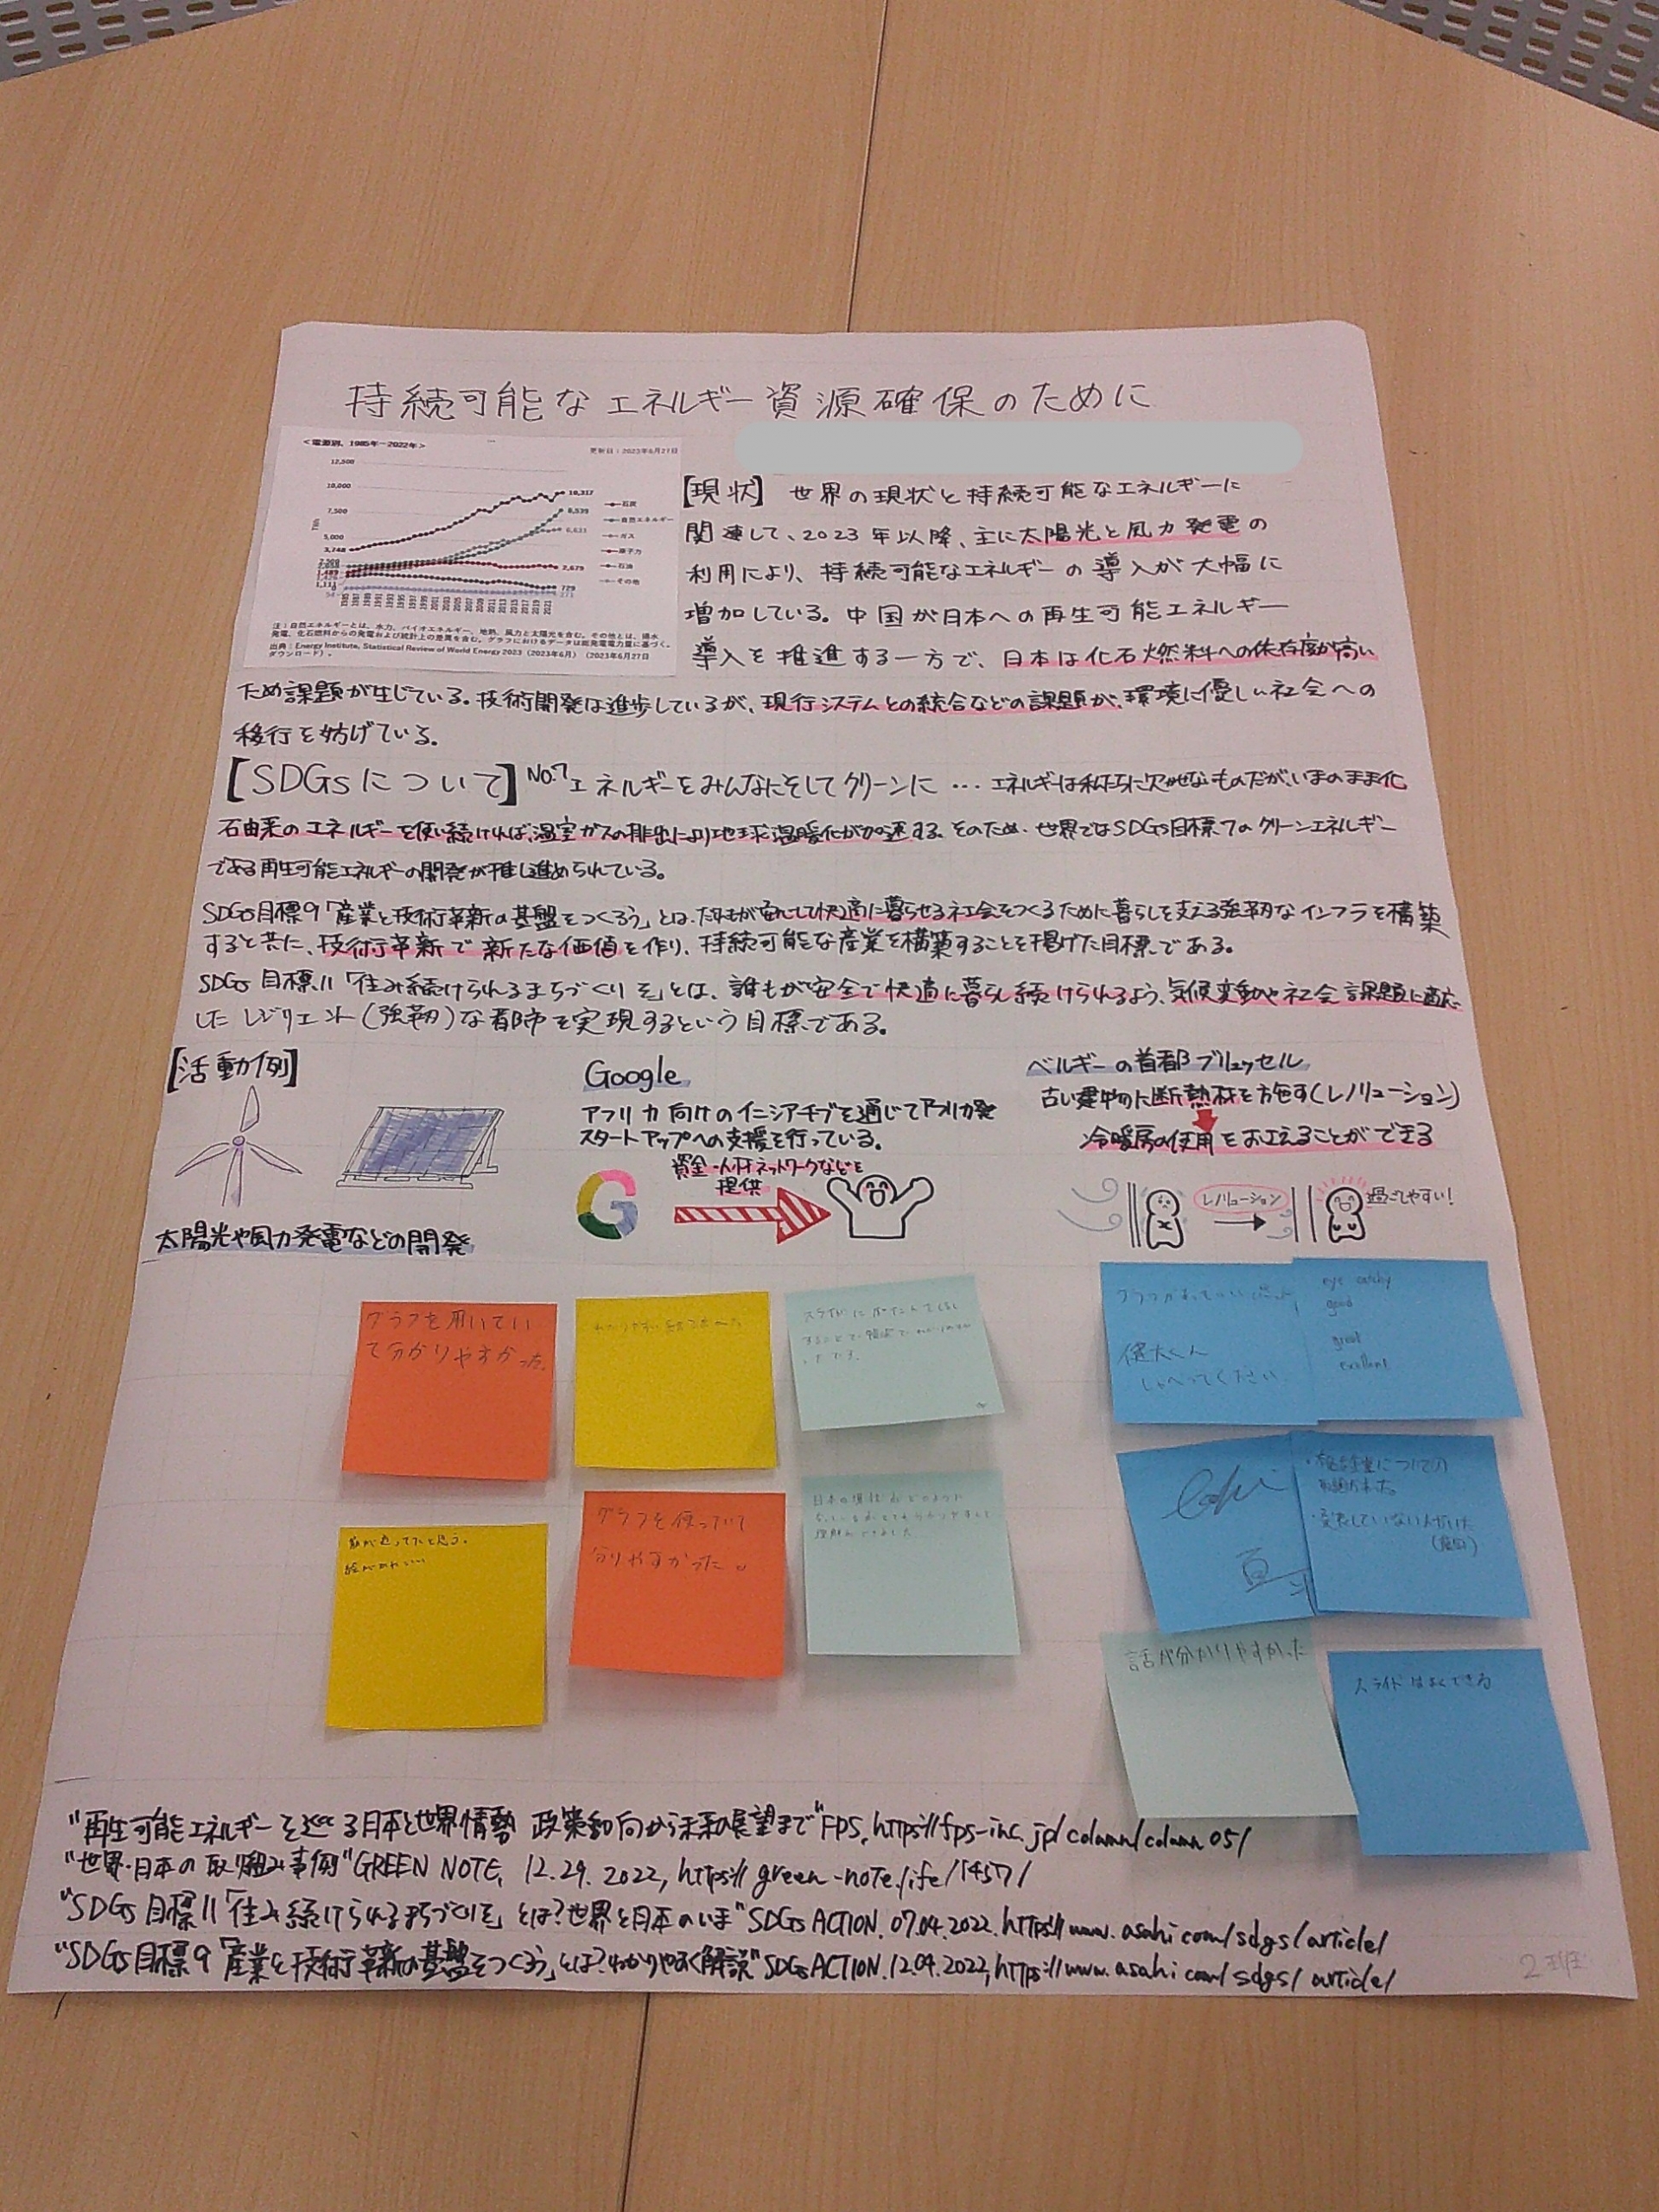 持続可能なエネルギー資源確保のために
<電源別、1985年−2022年>
更新日：2023年6月27日
12,500
10,000
7,500
5,000
3,748
TWh
10,317
8,539
6,631
2,679
729
371
石炭
自然エネルギー
ガス
原子力
石油
その他
注：自然エネルギーとは、水力、バイオエネルギー、地熱、風力と太陽光を含む。その他とは、揚水
発電、化石燃料からの発電および統計上の差異を含む。グラフにおけるデータは総発電電力量に基づく。
出典：Energy Institute, Statistical Review of World Energy 2023（2023年6月）（2023年6月27日
ダウンロード）。
【現状】 世界の現状と持続可能なエネルギーに
関連して、2023年以降、主に太陽光と風力発電の
利用により、持続可能なエネルギーの導入が大幅に
増加している。中国が日本への再生可能エネルギー
導入を推進する一方で、日本は化石燃料への依存度が高い
ため課題が生じている。技術開発は進歩しているが、現行システムとの統合などの課題が、環境に優しい社会への
移行を妨げている。
【SDGsについて】No.7エネルギーをみんなにそしてクリーンに…エネルギーは私たちに欠かせないものだが、いまのまま化
石由来のエネルギーを使い続ければ、温室ガスの排出により地球温暖化が加速する。そのため、世界ではSDGs目標7のクリーンエネルギー
である再生可能エネルギーの開発が推し進められている。
SDGs目標9「産業と技術革新の基盤をつくろう」とは、だれもが安心して快適に暮らせる社会をつくるために暮らしを支える強靭なインフラを構築
すると共に、技術革新で新たな価値を作り、持続可能な産業を構築することを掲げた目標である。
SDGs目標11「住み続けられるまちづくりを」とは、誰もが安全で快適に暮らし続けられるよう、気候変動や社会課題に適応
した レジリエント（強靭）な都市を実現するという目標である。
【活動例】
太陽光や風力発電などの開発
Google
アフリカ向けのイニシアチブを通じてアフリカ発
スタートアップへの支援を行っている。
資金・人材・ネットワークなどを
提供
G
ベルギーの首都ブリュッセル
古い建物に断熱材を施す(レノリューション)
冷暖房の使用をおさえることができる
レノリューション
過ごしやすい！
グラフを用いてい
て分かりやすかった。
グラフを使っていて
分りやすかった。
eye catchy
good
great
excellent
健太くん
しゃべってください
話が分かりやすかった
スライドは よくできる
"再生可能エネルギーを巡る日本と世界情勢 政策動向から未来の展望まで"FPS, https://fps-inc.jp/column/column05/
"世界・日本の取り組み事例"GREEN NOTE, 12.29.2022, https://green-note.life/1457/
"SDGs目標11「住み続けられるまちづくりを」とは？世界と日本のいま"SDGs ACTION. 07.04.2022. https://www.asahi.com/sdgs/article/
"SDGs目標9「産業と技術革新の基盤をつくろう」とは？わかりやすく解説"SDGs ACTION. 12.04.2022, https://www.asahi.com/sdgs/article/
2班